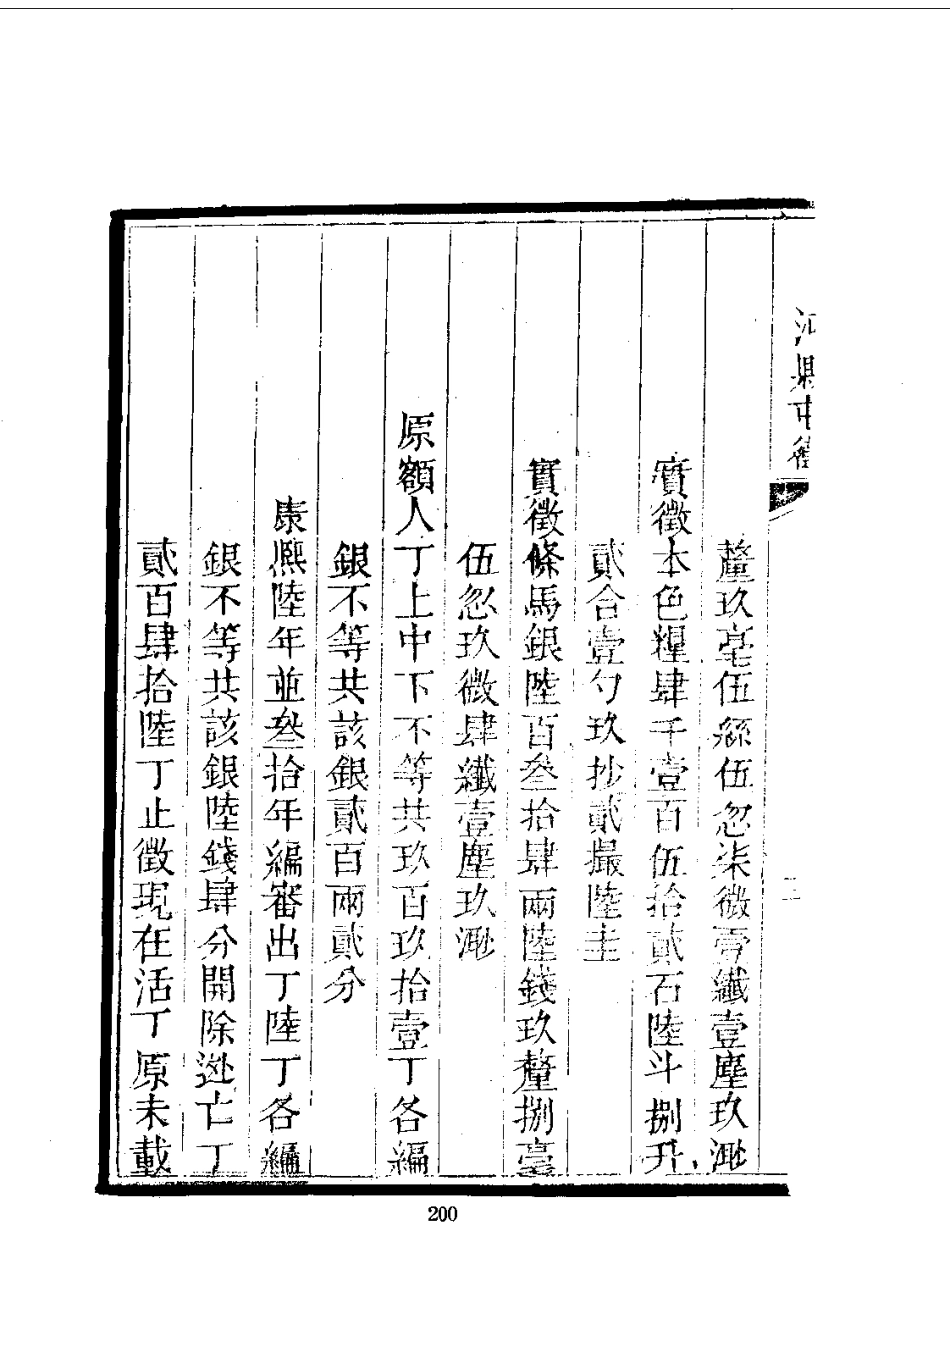 釐玖毫伍絲伍忽柒微壹纖壹塵玖渺
實徵本色糧肆千壹百伍拾貳石陸斗捌升
貳合壹勺玖抄貳撮陸圭
實徵條馬銀陸百叁拾肆兩陸錢玖釐捌毫
伍忽玖微肆纖壹塵玖渺
原額人丁上中下不等共玖百玖拾壹丁各編
銀不等共該銀貳百兩貳分
康熙陸年並叁拾年編審出丁陸丁各編
銀不等共該銀陸錢肆分開除逃亡丁
貳百肆拾陸丁止徵現在活丁原未載
200